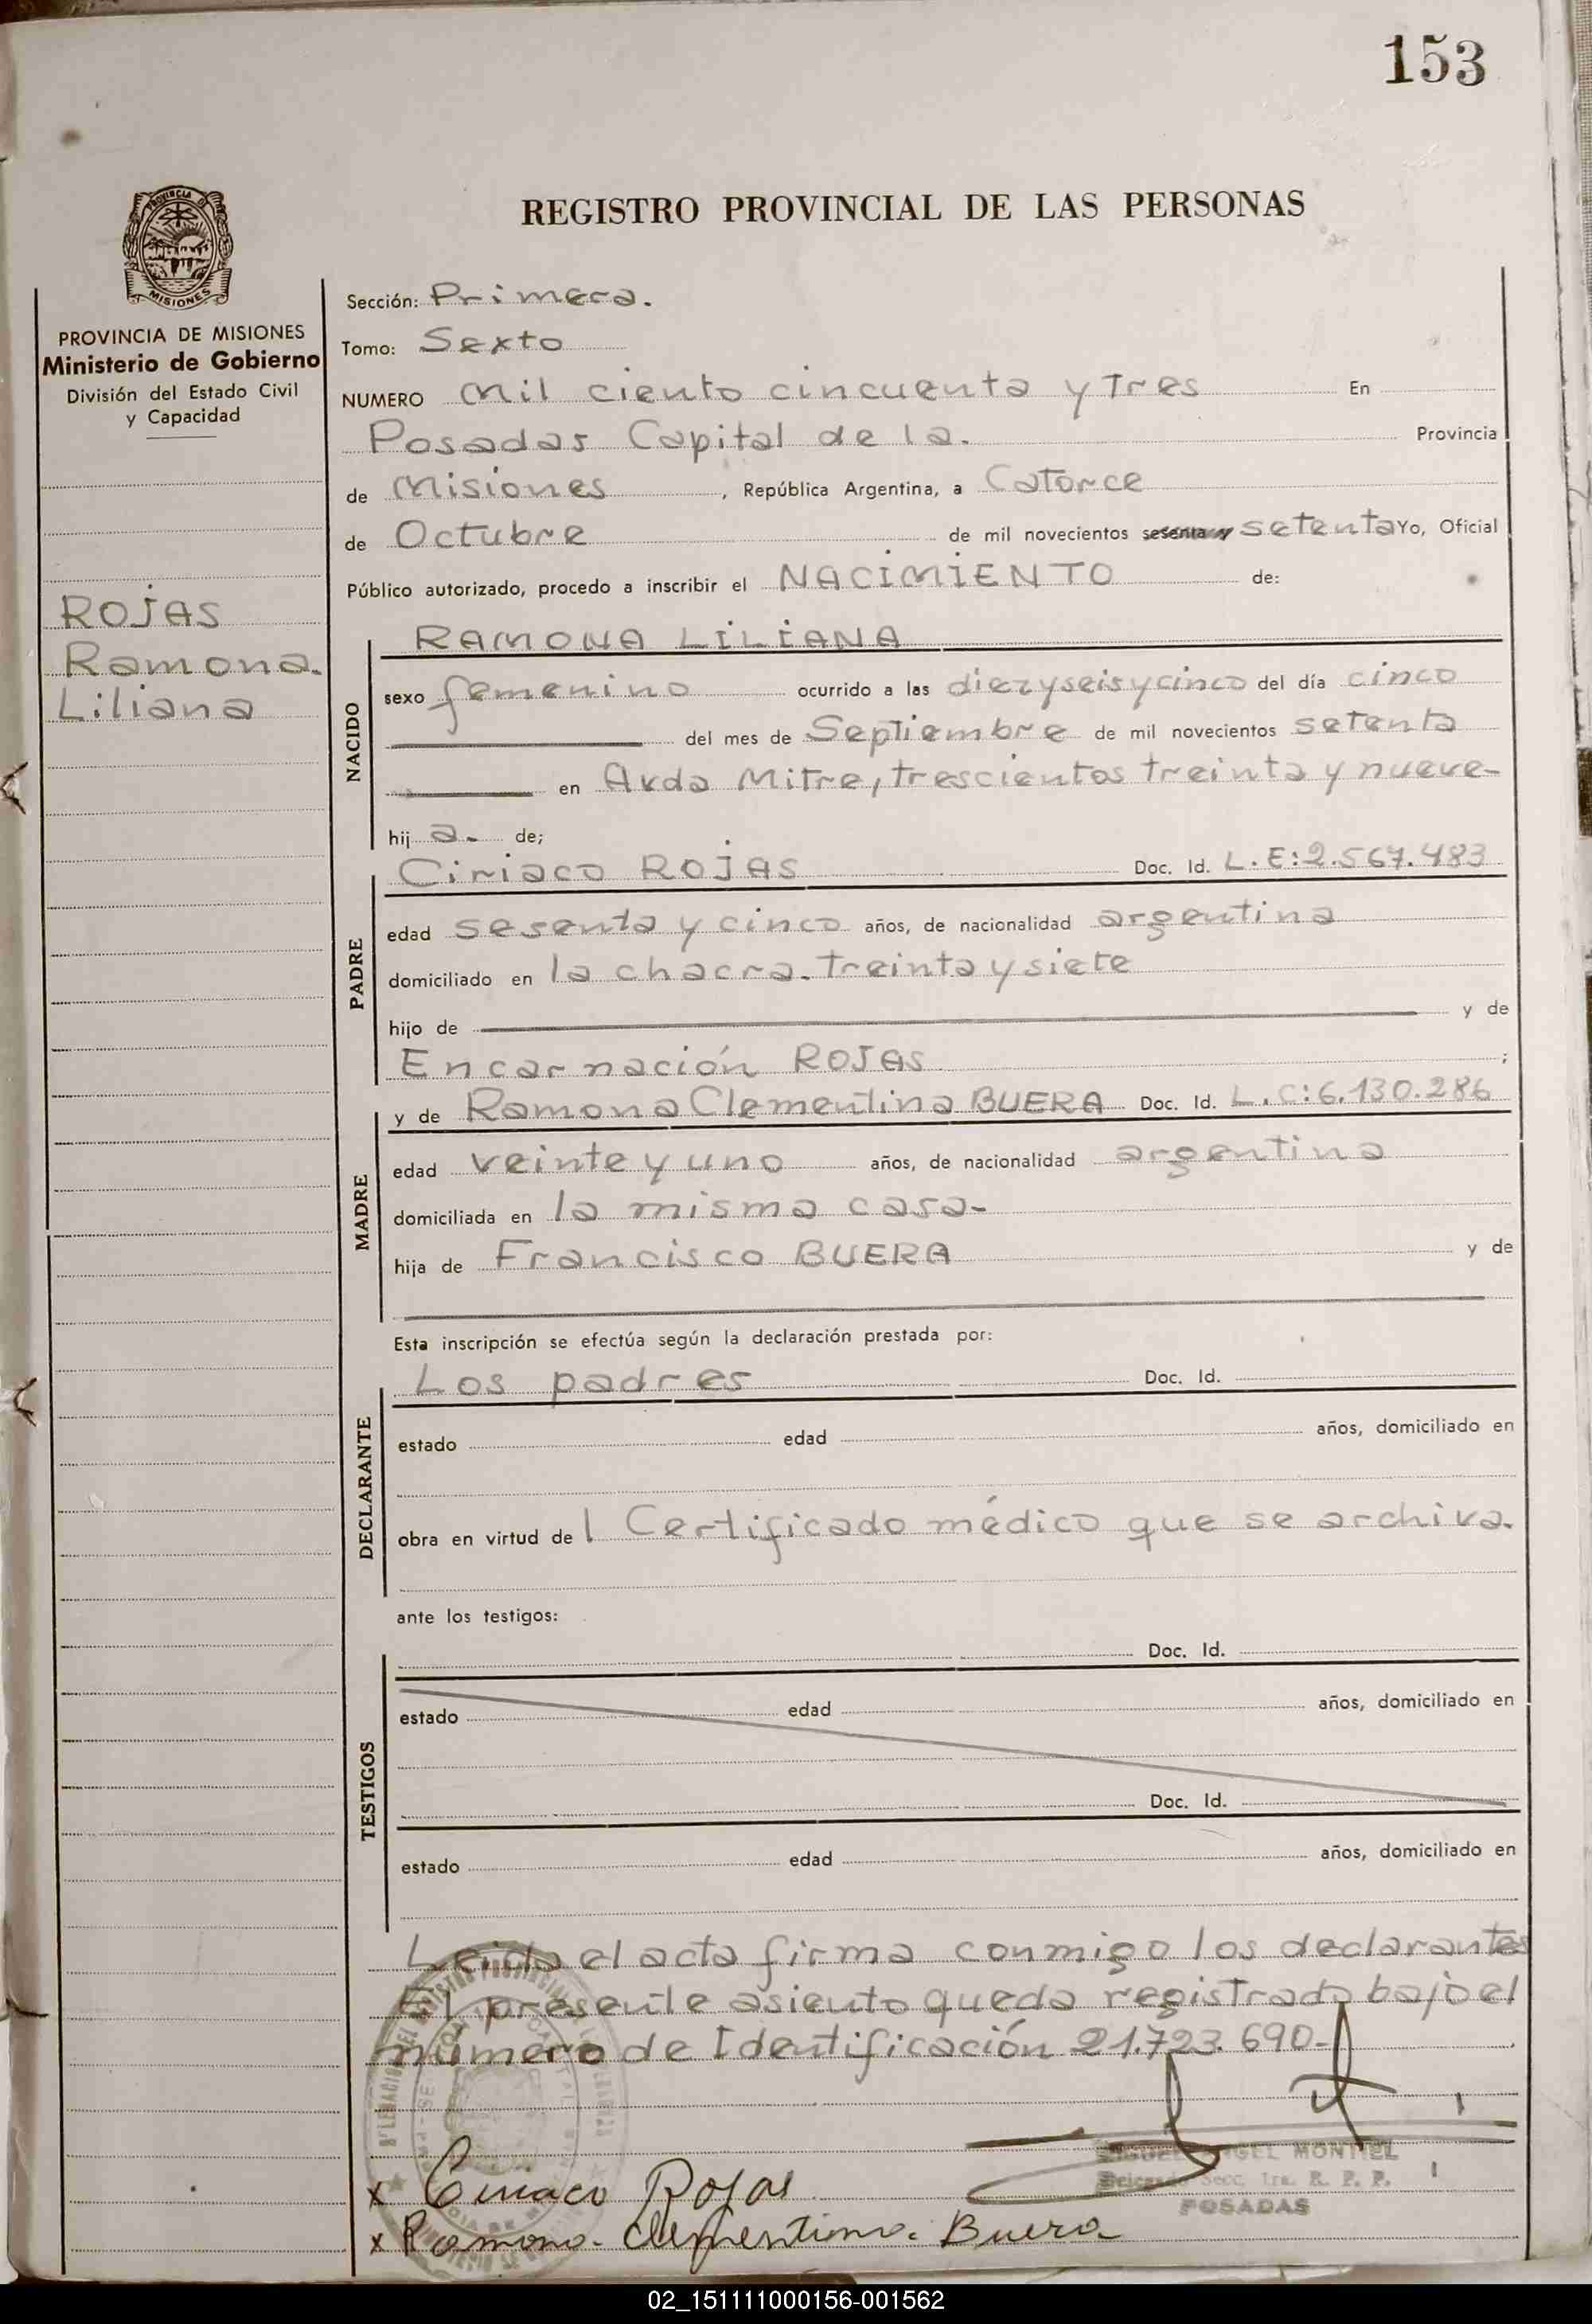 153
PROVINCIA DE
MISIONES
REGISTRO PROVINCIAL DE LAS PERSONAS
PROVINCIA DE MISIONES
Ministerio de Gobierno
División del Estado Civil
y Capacidad
ROJAS
Ramona.
Liliana
Sección: Primera.
Tomo: Sexto
NUMERO mil ciento cincuenta y tres En
Posadas Capital de la. Provincia
de Misiones, República Argentina, a Catorce
de Octubre de mil novecientos sesenta y setenta Yo, Oficial
Público autorizado, procedo a inscribir el NACIMIENTO de:
NACIDO
RAMONA LILIANA
sexo femenino ocurrido a las diezyseisycinco del día cinco
del mes de Septiembre de mil novecientos setenta
en Avda Mitre, trescientos treinta y nueve-
hij a. de;
PADRE
Ciriaco ROJAS Doc. Id. L.E:2.567.483
edad sesenta y cinco años, de nacionalidad argentina
domiciliado en la chacra. treinta y siete
hijo de y de
Encarnación ROJAS ;
MADRE
y de Ramona Clementina BUERA Doc. Id. L.C:6.130.286
edad veinte y uno años, de nacionalidad argentina
domiciliada en la misma casa-
hija de Francisco BUERA y de
Esta inscripción se efectúa según la declaración prestada por:
DECLARANTE
Los padres Doc. Id.
estado edad años, domiciliado en
obra en virtud de l Certificado médico que se archiva.
ante los testigos:
TESTIGOS
Doc. Id.
estado edad años, domiciliado en
Doc. Id.
estado edad años, domiciliado en
Leida el acta firma conmigo los declarantes
El presente asiento queda registrado bajo el
número de Identificación 21.723.690-
MIGUEL ANGEL MONTIEL
Delegado Secc. 1ra. R. P. P.
POSADAS
x Ciriaco Rojas
x Ramona. Clementina. Buera
02_151111000156-001562